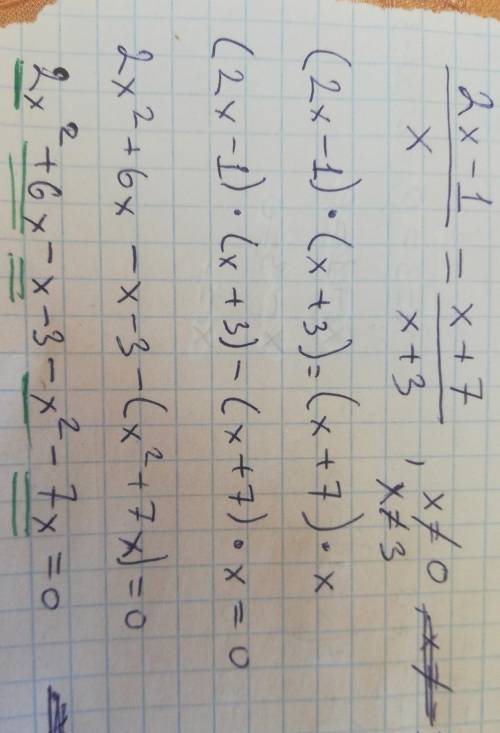 (2x-1)/x = (x+7)/(x+3) , x≠0
x≠3
(2x-1)·(x+3)=(x+7)·x
(2x-1)·(x+3)-(x+7)·x=0
2x²+6x-x-3-(x²+7x)=0
2x²+6x-x-3-x²-7x=0